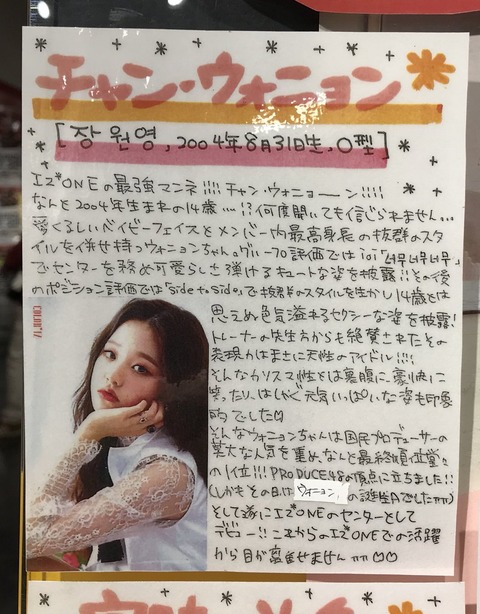 チャン・ウォニョン
[장원영, 2004年8月31日生, O型]
IZ*ONEの最強マンネ!!!! チャン・ウォニョーーン!!!!
なんと2004年生まれの14歳…!? 何度聞いても信じられません…
愛くるしいベイビーフェイスとメンバー内最高身長の抜群のスタ
イルを併せ持つウォニョンちゃん。グループ評価ではioi「너무너무너무」
でセンターを務め可愛らしさ弾けるキュートな姿を披露!!その後
のポジション評価では「Side to Side」で抜群のスタイルを生かし14歳とは
思えぬ色気溢れるセクシーな姿を披露!
トレーナーの先生方からも絶賛されたその
表現力はまさに天性のアイドル!!!!
そんなカリスマ性とは裏腹に、豪快に
笑ったり、はしゃぐ元気いっぱいな姿も印象
的でした♡
そんなウォニョンちゃんは国民プロデューサーの
莫大な人気を集め、なんと最終順位堂々
の1位!!! PRODUCE48の頂点に立ちました!!
(しかもその日はウォニョンの誕生日でしたㅠㅠ)
そして遂にIZ*ONEのセンターとして
デビュー!!これからのIZ*ONEでの活躍
から目が離せません ㅠㅠ♡♡